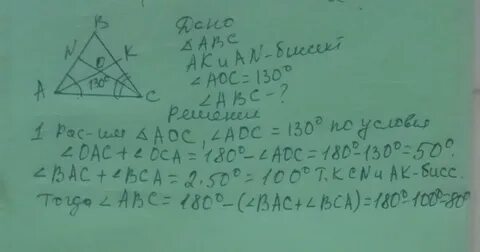 B
N
K
O
130°
A
C
Дано
∡ABC
AK и AN-биссект
∠AOC=130°
∠ABC-?
Решение
1 Рас-им ∡AOC, ∠AOC = 130° по условия
∠OAC+∠OCA=180°-∠AOC=180°-130°=50°.
∠BAC+∠BCA=2·50°=100° Т.К CN и AK-бисс.
Тогда ∠ABC=180°-(∠BAC+∠BCA)=180°-100°=80°